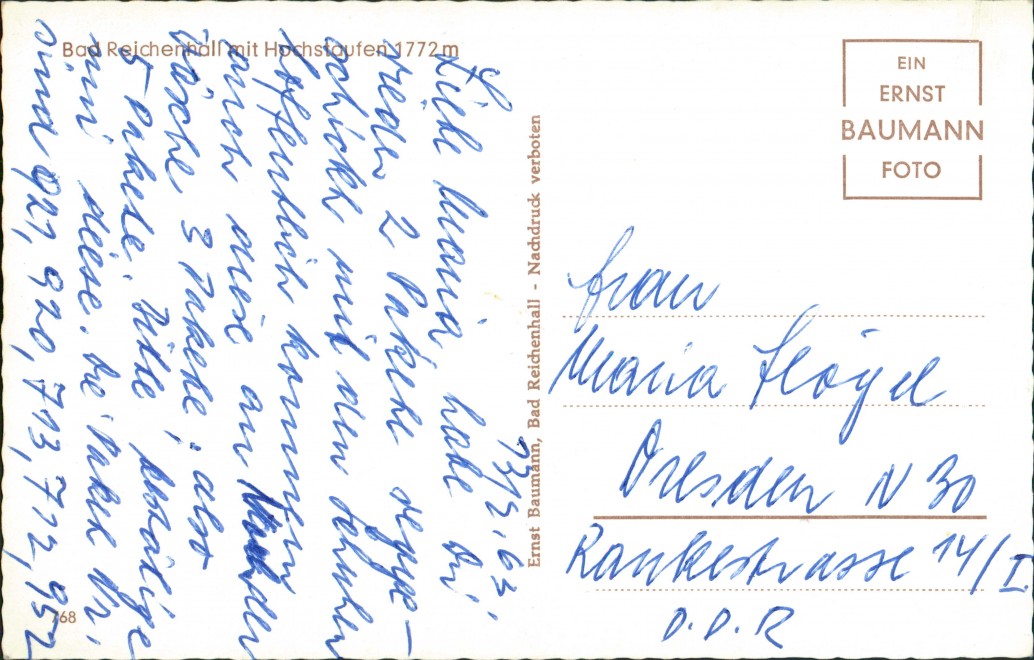 Bad Reichenhall mit Hochstaufen 1772 m
13/2. 63.
Liebe Maria, habe Dir
wieder 2 Pakete wegge-
schickt mit den Schuhen
hoffentlich kommen
auch diese an
Wäsche 3 Pakete, also
5 Pakete. Bitte bestätige
mir diese. Die Paket Nr.
sind 921, 920, 713, 712, 952
768
Ernst Baumann, Bad Reichenhall - Nachdruck verboten
EIN
ERNST
BAUMANN
FOTO
Frau
Maria Flögel
Dresden N 30
Rankestrasse 14/I.
D.D.R